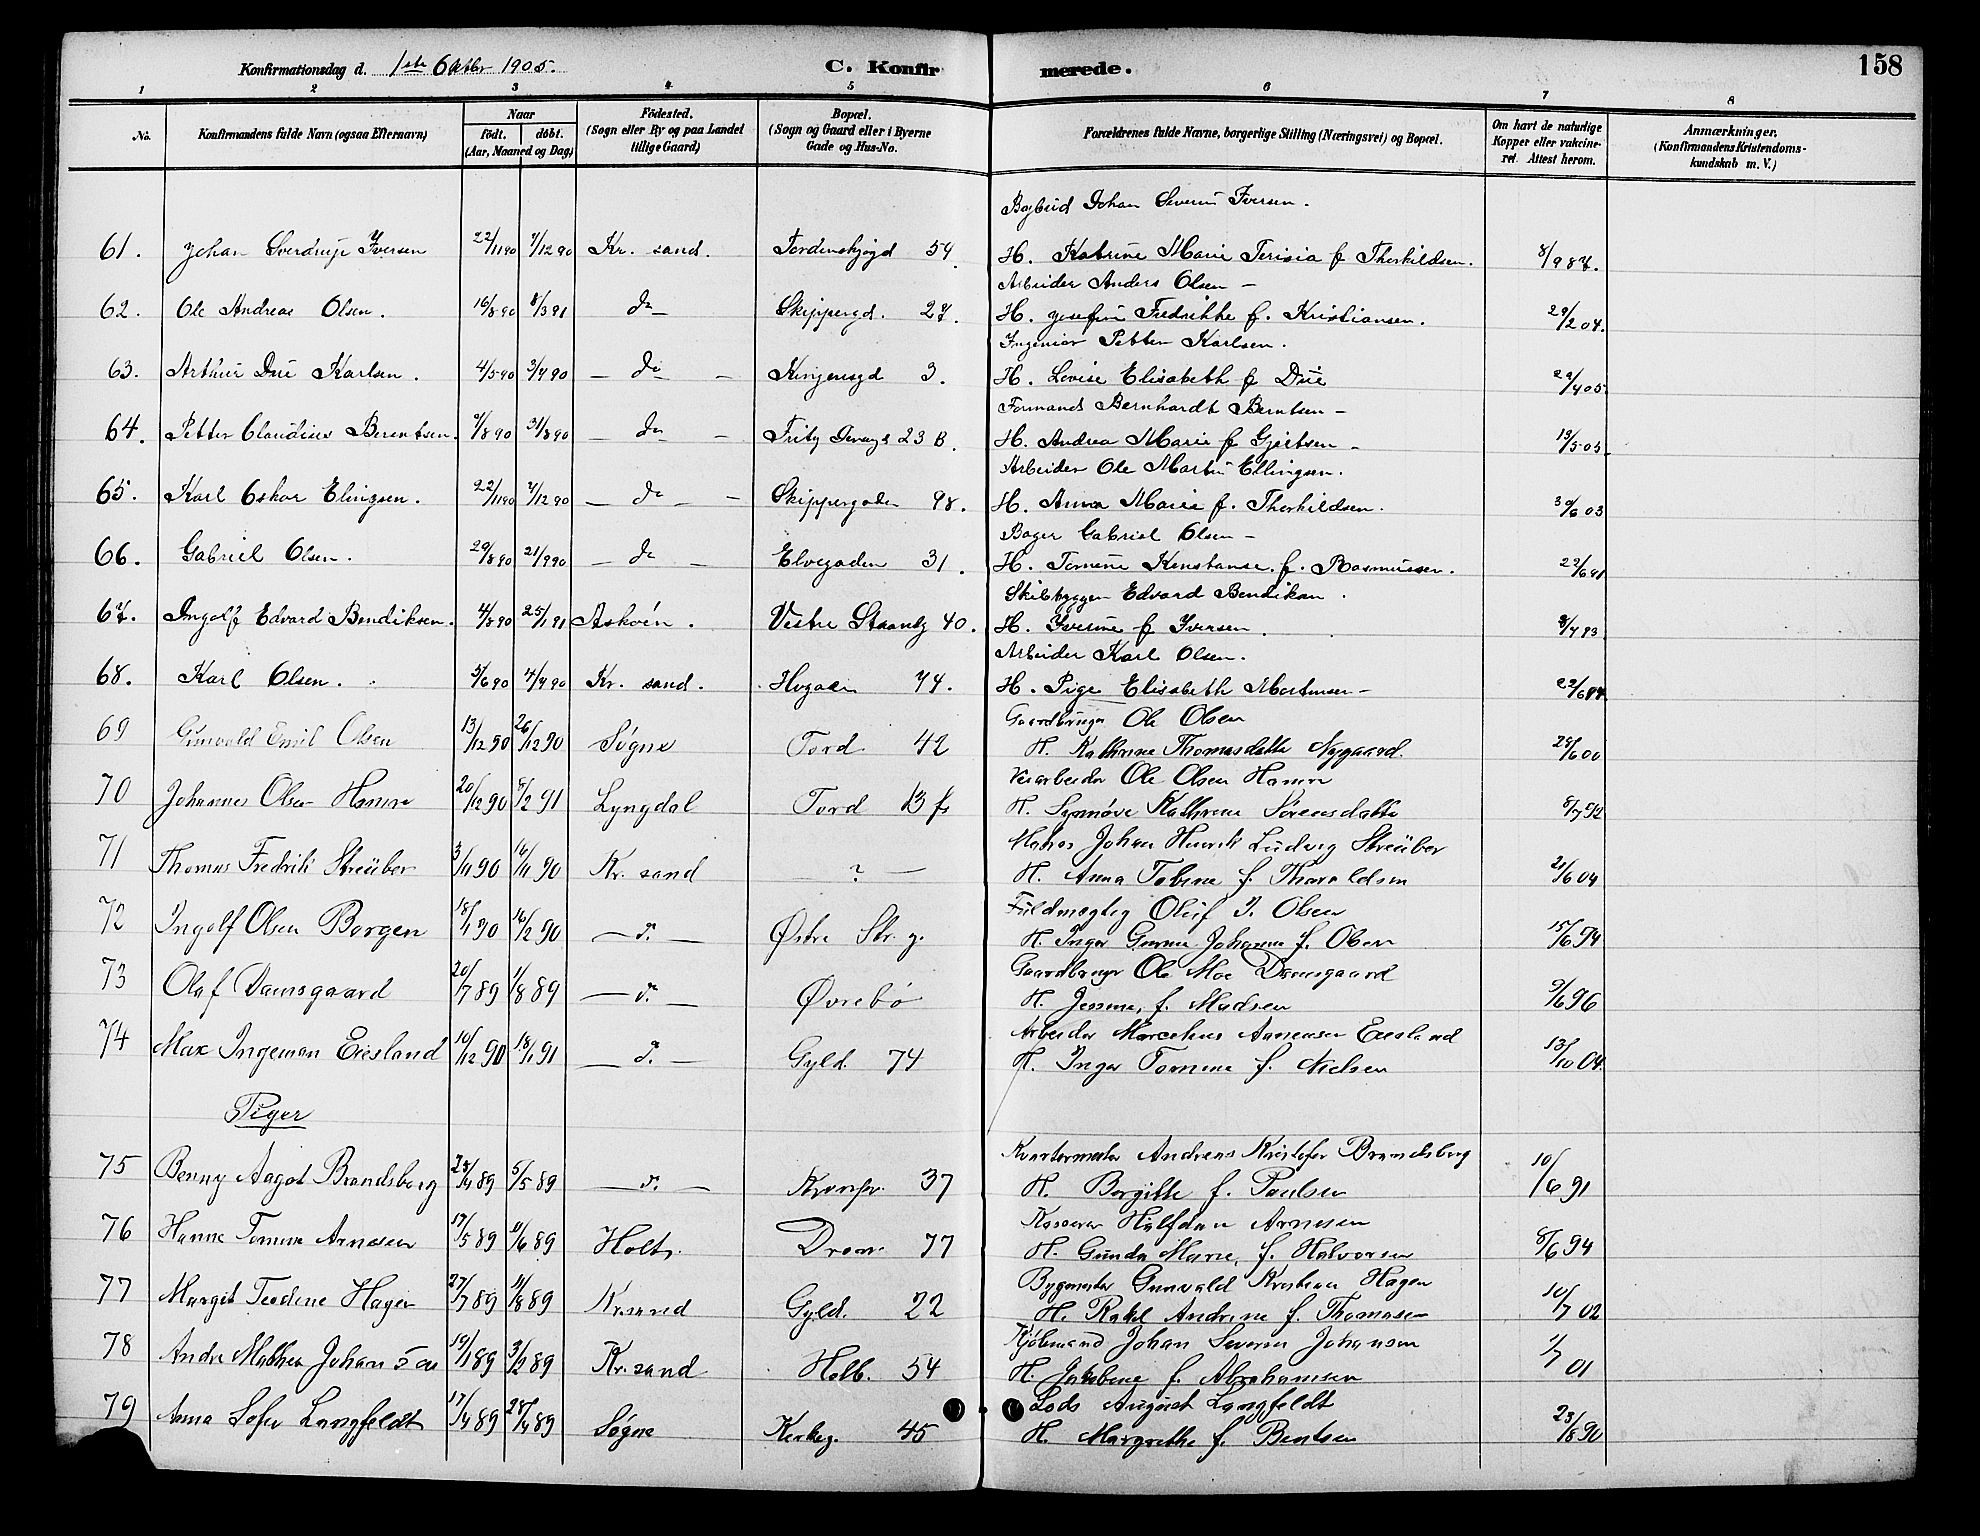 Konfirmationsdag d. 1ste Oktbr 1905.
C. Konfirmerede.
158
1 2 3 4 5 6 7 8
No.
Konfirmandens fulde Navn (ogsaa Efternavn)
Naar
født. døbt.
(Aar, Maaned og Dag)
Fødested.
(Sogn eller By og paa Landet
tillige Gaard)
Bopæl.
(Sogn og Gaard eller i Byerne
Gade og Hus-No.
Forældrenes fulde Navne, borgerlige Stilling (Næringsvei) og Bopæl.
Om havt de naturlige
Kopper eller vakcine-
ret. Attest herom.
Anmærkninger.
(Konfirmandens Kristendoms-
kundskab m. V.)
Johan Severin Iversen.
61. Johan Sverdrup Iversen 22/11 90 7/12 90 Kr. sand. 54. H. Katrine Marie f Thorkildsen. 8/9 87.
Arbeider Anders Olsen –
62. Ole Andreas Olsen. 16/8 90 8/3 91 do Skippergd. 27. H. Josefine Fredrikke f. Kristiansen. 29/2 04.
Ingeniør Petter Karlsen.
63. Arthur Due Karlsen. 4/5 90 3/4 90 – do – Kongensgd 3. H. Lovise Elisabeth f Due 29/4 05
Formand Bernhardt Berntsen –
64. Petter Claudius Berentsen. 9/8 90 31/8 90 – do – 23 B. H. Andrea Marie f Gjertsen – 13/5 05.
Arbeider Ole Martin Ellingsen.
65. Karl Oskar Elingsen. 22/11 90 7/12 90 – do – Skippergaden 98. H. Anna Marie f. Thorkildsen. 30/6 03
Bager Gabriel Olsen –
66. Gabriel Olsen. 29/8 90 21/9 90 – do – Elvegaden 31. H. Tomine Konstanse f. Rasmussen. 22/6 91
Skibbygger Edvard Bendiksen.
67. Ingolf Edvard Bendiksen. 4/8 90 25/1 91 Askøen. Vestre Strandg 40. H. Iverine f Iversen. 8/7 93.
Arbeider Karl Olsen.
68. Karl Olsen. 5/6 90 4/9 90 Kr. sand. 74. H. Pige Elisabeth Mortensen –
Gaardbruger Ole Olsen
69 Gunvald Emil Olsen 13/12 90 26/12 90 Søgne Tord. 42 H. Kathrine Thomasdatter Nygaard. 28/6 00
Veiarbeider Ole Olsen Hamre
70 Johannes Olsen Hamre 20/12 90 8/2 91 Lyngdal Tord 13 H. Synnøve Kathrine Sørensdatter 8/7 92
Johan Henrik Ludvig Streuber
71 Thomas Fredrik Streuber 3/11 90 16/11 90 Kr. sand – ? – H. Anna Tobine f. Tharaldsen 21/6 04
Fuldmægtig Oluf I. Olsen
72 Ingolf Olsen Borgen 18/1 90 16/2 90 – d. – Østre Str. g. H. Inger Gurine Johanne f. Olsen 15/6 94
Gaardbruger Ole Moe Damsgaard
73 Olaf Damsgaard 20/7 89 1/8 89 – d. – Øvrebø H. Jensine, f. Madsen 9/6 96
Arbeider Marcelius Aanensen Eiesland
74 Max Ingeman Eiesland 10/12 90 18/1 91 – d. – Gyld. 74 H. Inger Tomine f. Nielsen 13/10 04.
Piger
Kvartermester Andreas Kristofer Brandsberg
75 Benny Aagot Brandsberg 23/4 89 5/5 89 – d. – Kronpr. 37 H. Borgitte f. Paulsen 10/6 91
Kasserer Halfdan Arnesen
76 Hanne Tomine Arnesen 17/5 89 11/6 89 Holt. Dron. 77 H. Gunda Marie, f. Halvorsen 8/6 94
Bygmester Gunvald Kristian Hagen
77 Margit Teodine Hagen 27/7 89 11/8 89 Kr.sand Gyld. 22 H. Rakel Andrine f. Thomasen 10/7 02
Kjøbmand Johan Severin Johansen
78 Andre Mathea Johansen 19/1 89 3/2 89 Kr. sand Holb. 54 H. Jakobine f. Abrahamsen 1/7 01
Lods August Langfeldt
79 Anna Sofie Langfeldt 17/4 89 28/4 89 Søgne Kirkeg. 45 H. Margrethe f. Bentsen 23/8 90